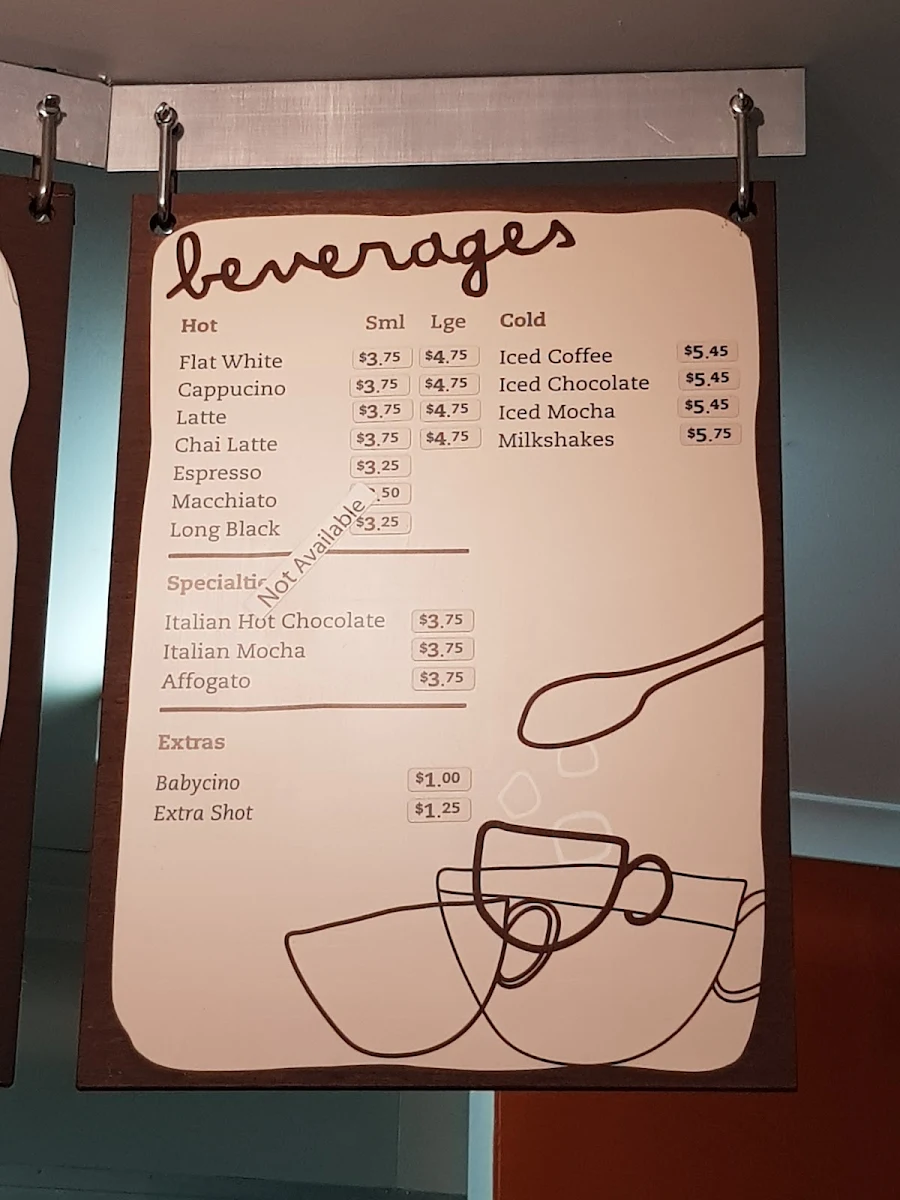 beverages
Hot Sml Lge
Flat White $3.75 $4.75
Cappucino $3.75 $4.75
Latte $3.75 $4.75
Chai Latte $3.75 $4.75
Espresso $3.25
Macchiato .50
Long Black $3.25
Not Available
Italian Hot Chocolate $3.75
Italian Mocha $3.75
Affogato $3.75
Extras
Babycino $1.00
Extra Shot $1.25
Cold
Iced Coffee $5.45
Iced Chocolate $5.45
Iced Mocha $5.45
Milkshakes $5.75